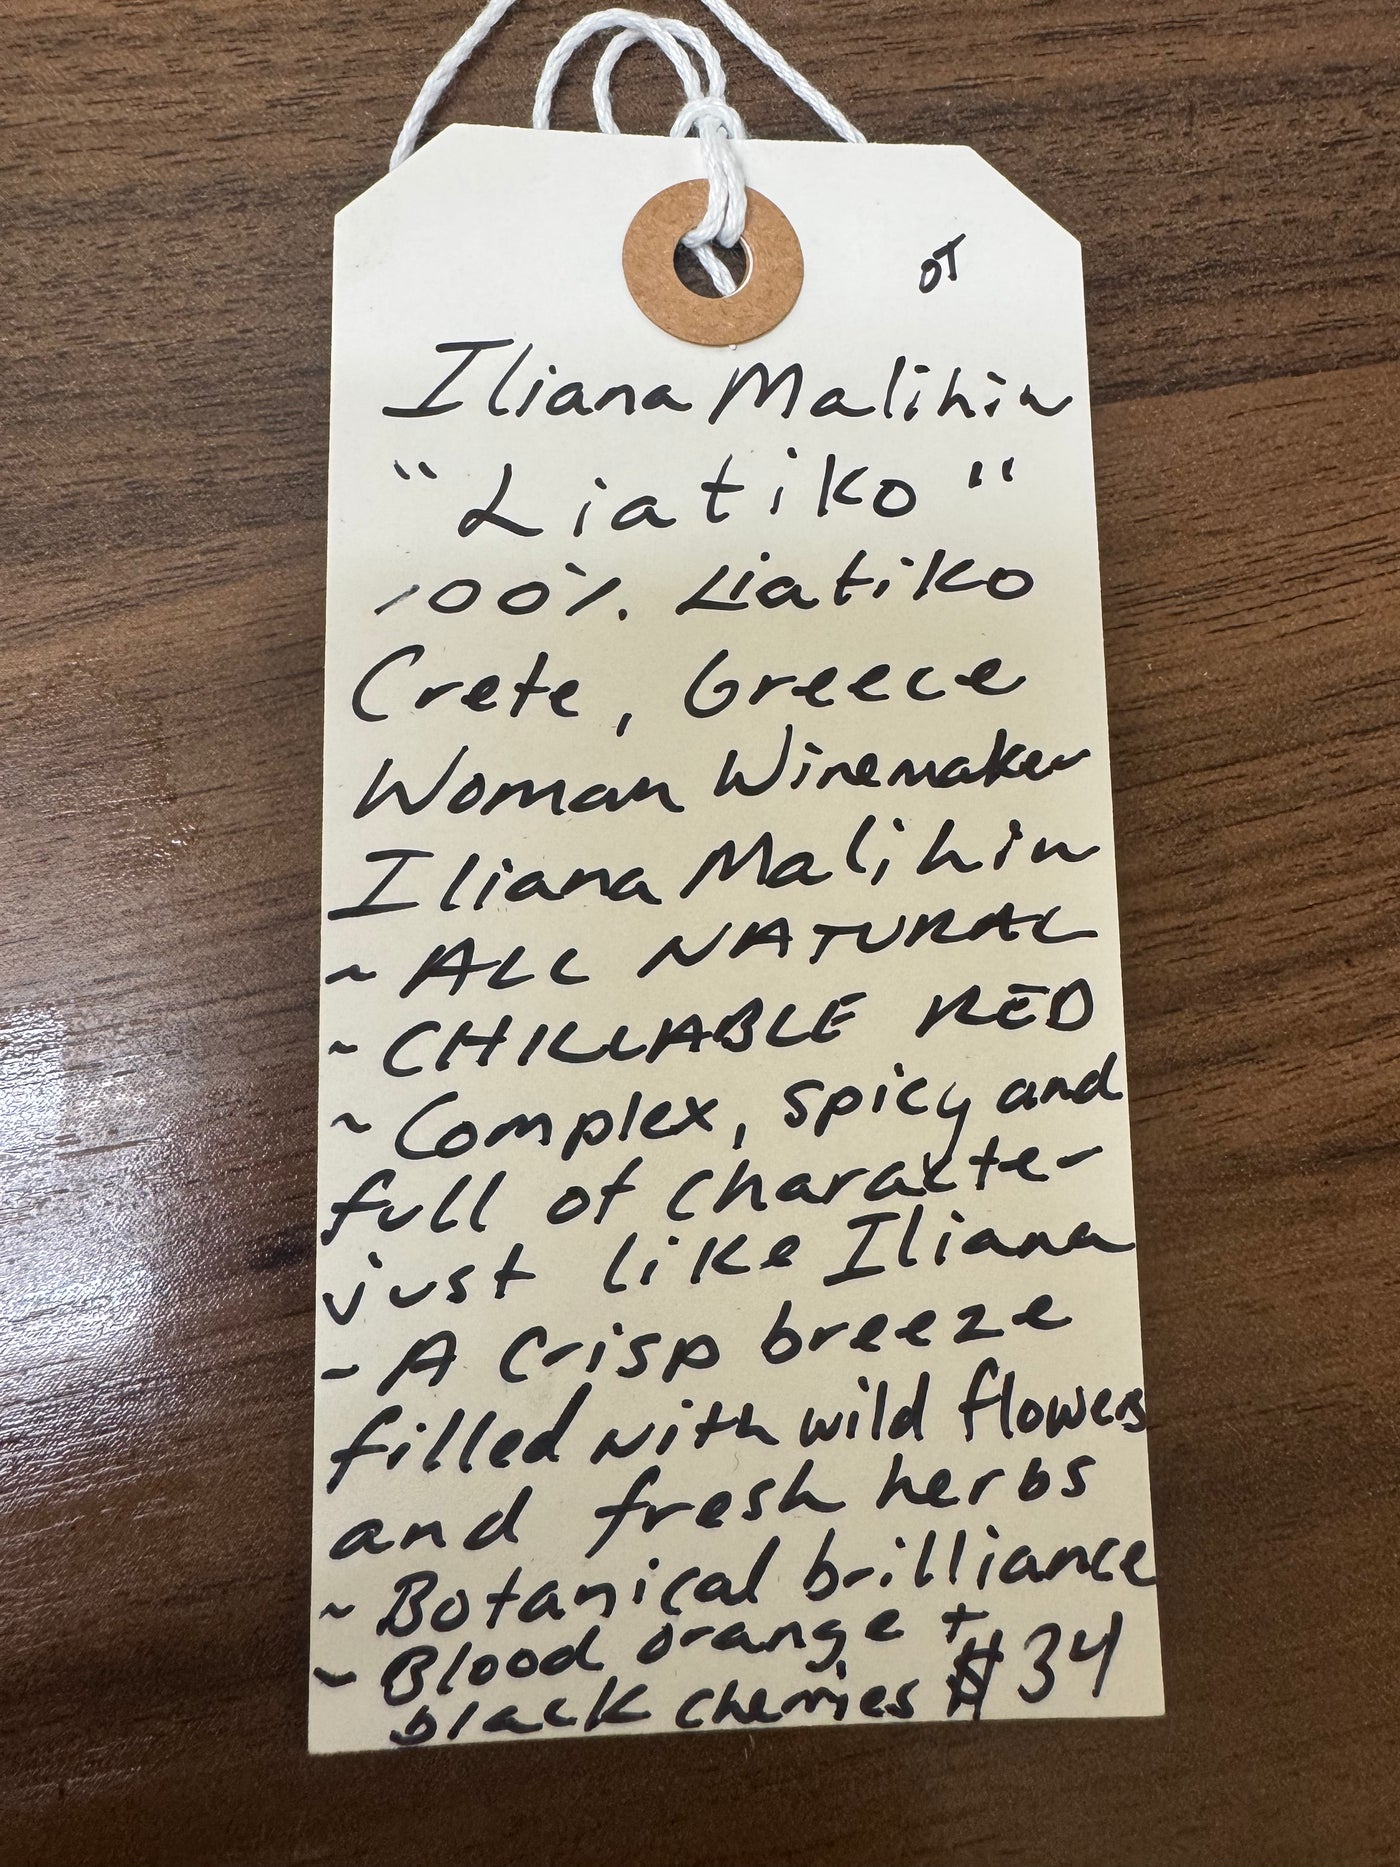 OT
Iliana Malihin
"Liatiko"
100% Liatiko
Crete, Greece
Woman Winemaker
Iliana Malihin
~ ALL NATURAL
~ CHILLABLE RED
~ Complex, spicy and
full of character
just like Iliana
~ A crisp breeze
filled with wild flowers
and fresh herbs
~ Botanical brilliance
~ Blood orange +
black cherries $34